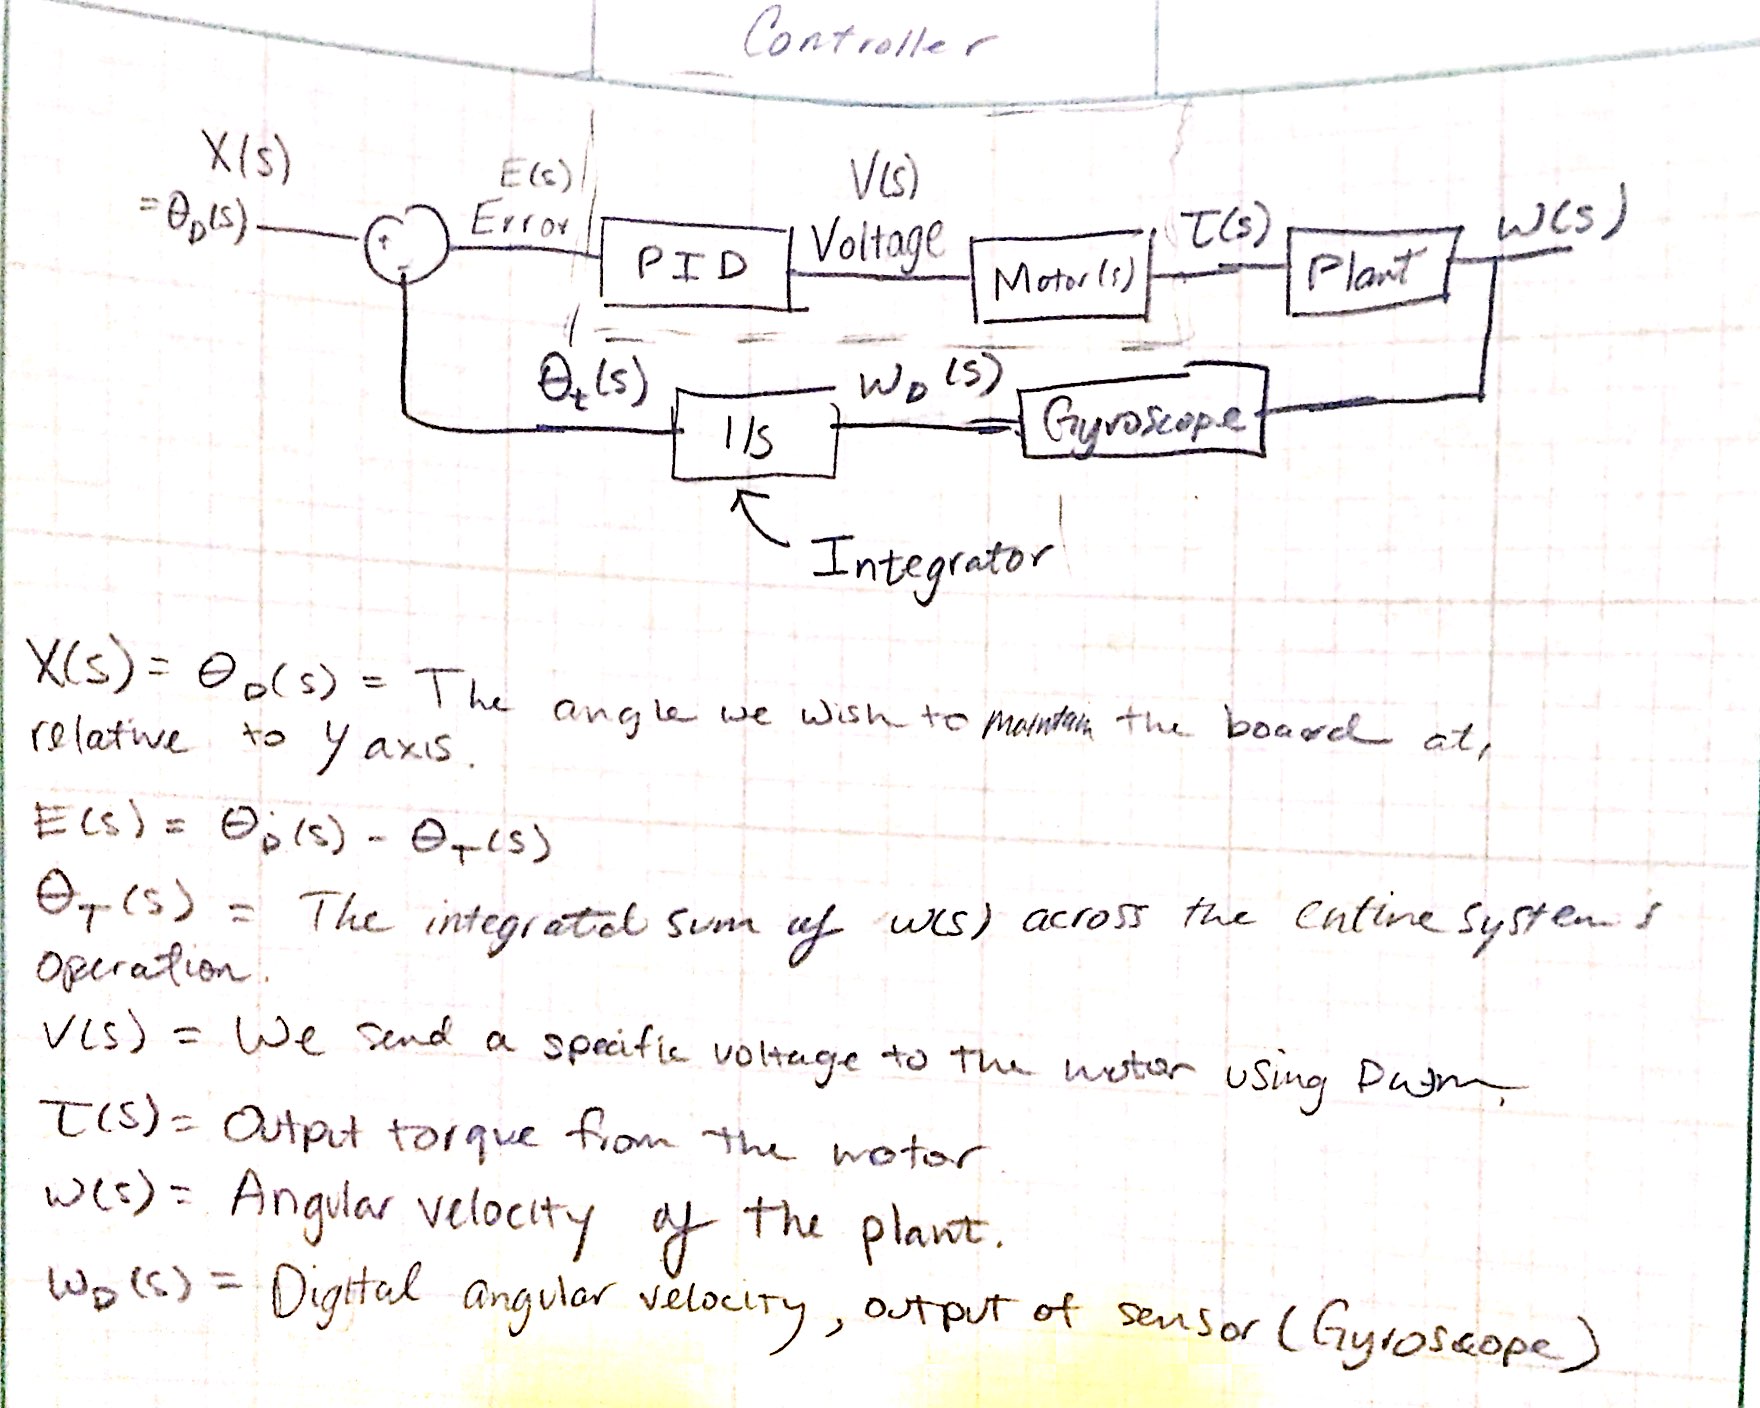 Controller
X(s)
= θ_D(s)
+
-
E(s)
Error
PID
V(s)
Voltage
Motor(s)
τ(s)
Plant
ω(s)
θ_t(s)
1/s
ω_D(s)
Gyroscope
Integrator
X(s) = θ_D(s) = The angle we wish to maintain the board at,
relative to y axis.
E(s) = θ_D(s) - θ_T(s)
θ_T(s) = The integrated sum of ω(s) across the entire system's
operation.
V(s) = We send a specific voltage to the motor using
τ(s) = Output torque from the motor.
ω(s) = Angular velocity of the plant.
ω_D(s) = Digital angular velocity, output of sensor (Gyroscope)